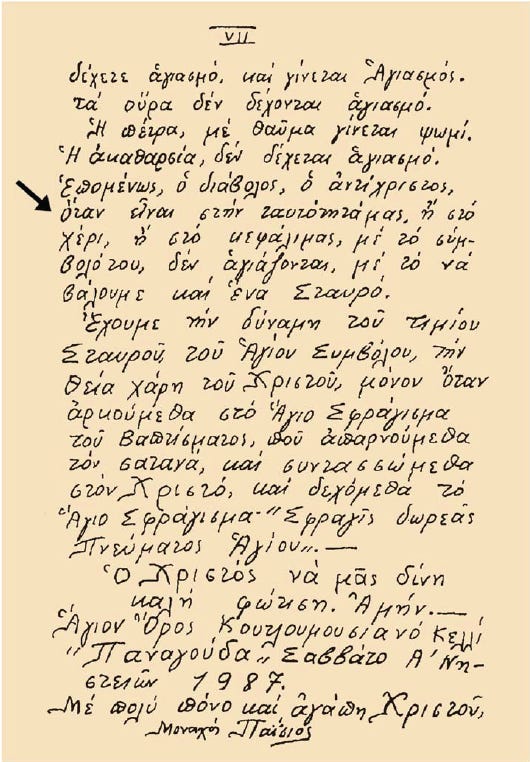 VII
δέχετε ἁγιασμό, καί γίνεται Ἁγιασμός.
τά οὖρα δέν δέχονται ἁγιασμό.
Ἡ πέτρα, μέ θαῦμα γίνεται ψωμί.
Ἡ ἀκαθαρσία, δέν δέχεται ἁγιασμό.
Ἑπομένως, ὁ διάβολος, ὁ ἀντίχριστος,
ὅταν εἶναι στήν ταυτότητάμας, ἤ στό
χέρι, ἤ στό κεφάλιμας, μέ τό σύμ-
βολότου, δέν ἁγιάζονται, μέ τό νά
βάλουμε καί ἕνα Σταυρό.
Ἔχουμε τήν δύναμη τοῦ τιμίου
Σταυροῦ, τοῦ Ἁγίου Συμβόλου, τήν
θεία χάρη τοῦ Χριστοῦ, μόνον ὅταν
ἀρκούμεθα στό Ἅγιο Σφράγισμα
τοῦ Βαπτίσματος, ποῦ ἀπαρνούμεθα
τόν σατανά, καί συντασσώμεθα
στόν Χριστό, καί δεχόμεθα τό
Ἅγιο Σφράγισμα - "Σφραγῖς δωρεᾶς
Πνεύματος Ἁγίου". —
Ὁ Χριστός νά μᾶς δίνη
καλή φώτιση. Ἀμήν. —
Ἅγιον Ὄρος Κουτλουμουσιανό Κελλί
"Παναγούδα" Σαββάτο Α' Νη-
στειῶν 1987.
Μέ πολύ πόνο καί ἀγάπη Χριστοῦ,
Μοναχός Παΐσιος